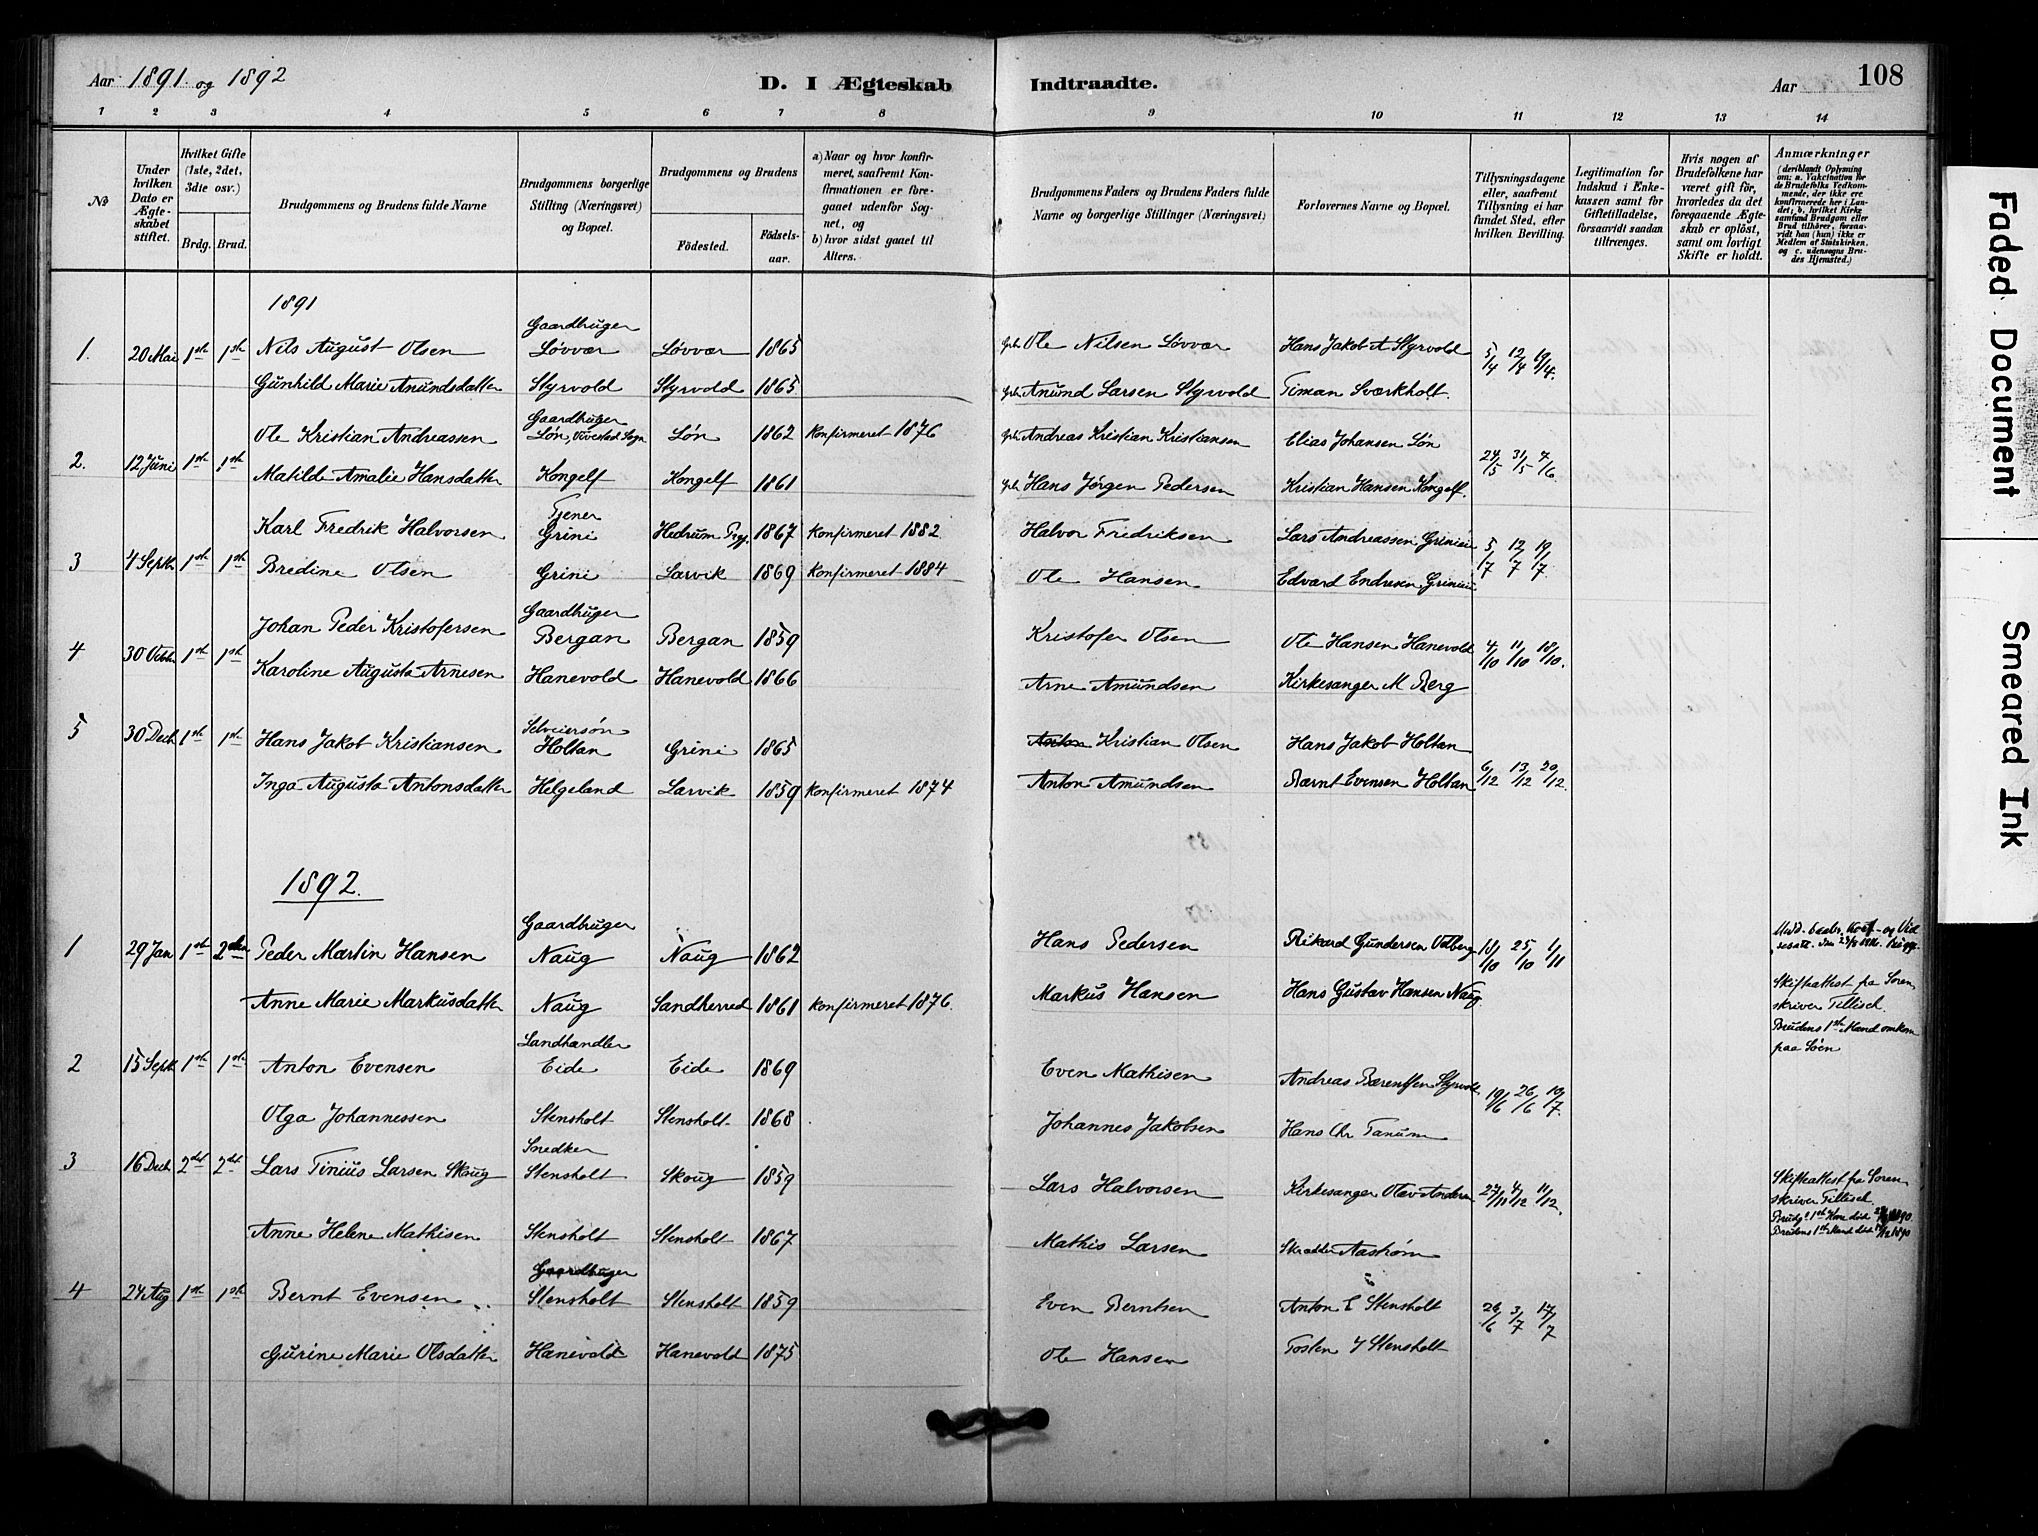 Aar 1891 og 1892 D. I Ægteskab Indtraadte. Aar 108
1 2 3 4 5 6 7 8 9 10 11 12 13 14
№
Under hvilken Dato er Ægteskabet stiftet.
Hvilket Gifte (1ste, 2det, 3die osv.)
Brdg. Brud.
Brudgommens og Brudens fulde Navne
Brudgommens borgerlige Stilling (Næringsvei) og Bopæl.
Brudgommens og Brudens
Födested. Födsels-aar.
a) Naar og hvor konfirmeret, saafremt Konfirmationen er foregaaet udenfor Sognet, og
b) hvor sidst gaaet til Alters.
Brudgommens Faders og Brudens Faders fulde Navne og borgerlige Stillinger (Næringsvei)
Forlovernes Navne og Bopæl.
Tillysningsdagene eller, saafremt Tillysning ei har fundet Sted, efter hvilken Bevilling.
Legitimation for Indskud i Enkekassen samt for Giftetilladelse, forsaavidt saadan tiltrænges.
Hvis nogen af Brudefolkene har været gift för, hvorledes da det foregaaende Ægteskab er oplöst, samt om lovligt Skifte er holdt.
Anmærkninger
(deriblandt Oplysning om: a. Vakcination for de Brudefolks Vedkommende, der ikke ere konfirmerede her i Landet; b. hvilket Kirkesamfund Brudgom eller Brud tilhörer, forsaavidt han (hun) ikke er Medlem af Statskirken. og c. udensogns Brudes Hjemsted.)
1891
Gaardbruger
1. 20 Mai 1ste 1ste Nils August Olsen Løvvær Løvvær 1865 Ole Nilsen Løvvær Hans Jakob A Styrvold 5/4 12/4 19/4.
Gunhild Marie Anundsdatter Styrvold Styrvold 1865 Anund Larsen Styrvold Timan Sværkholt.
Gaardbruger
Ole Kristian Andreassen Løn, Løn 1862 Konfirmeret 1876 Andreas Kristian Kristiansen Elias Johansen Løn
2. 12 Juni 1st 1st Matilde Amalie Hansdatter Kongelf Kongelf 1861 Hans Jørgen Pedersen Kristian Hansen Kongelf. 24/5 31/5 7/6.
Tjener
Karl Fredrik Halvorsen Grini Hedrum Prgj. 1867 Konfirmeret 1882 Halvor Fredriksen Lars Andreassen 5/7 12/7 19/7
3 4 Septb 1st 1st Bredine Olsen Grini Larvik 1869 Konfirmeret 1884 Ole Hansen Edvard Endresen
Gaardbruger
Johan Peder Kristofersen Bergan Bergan 1859 Kristofer Olsen Ole Hansen Hanevold 4/10 11/10 18/10.
4 30 Octbr 1st 1st Karoline Augusta Arnesen Hanevold Hanevold 1866 Arne Amundsen Kirkesanger M Berg
Selveiersøn
5 30 Decb 1st 1st Hans Jakob Kristiansen Holtan Grini 1865 Anton Kristian Olsen Hans Jakob Holtan
Inga Augusta Antonsdatter Helgeland Larvik 1859 Konfirmeret 1874 Anton Amundsen Bærnt Evensen Holtan 6/12 13/12 20/12.
1892.
Gaardbruger
1 29 Jan 1st 2den Peder Martin Hansen Naug Naug 1862 Hans Pedersen Rikard Gundersen Valberg 18/10 25/10 1/11
Anne Marie Markusdatter Naug Sandherred 1861 Konfirmeret 1876. Markus Hansen Hans Gustav Hansen Naug.
Skifteattest fra Soren
skriver Tillisch.
Brudens 1st Mand omkom
paa Søen
Landhandler
2 15 Septb 1ste 1ste Anton Evensen Eide Eide 1869 Even Mathisen Andreas Bærentsen Styrvold 19/6 26/6 10/7.
Olga Johannessen Stensholt Stensholt 1868 Johannes Jakobsen Hans Chr Tanum
Snedker
3 16 Decb 2det 2det Lars Tinius Larsen Skoug Stensholt Skoug 1859 Lars Halvorsen Kirkesanger Olav Andersen 27/11 4/12 11/12.
Skifteattest fra Soren
skriver Tillisch
Anne Helene Mathisen Stensholt Stensholt 1867 Mathis Larsen Skrædder Aashøm
Gaardbruger
4 24 Aug 1st 1st Bernt Evensen Stensholt Stensholt 1859 Even Berntsen Anton E Stensholt 26/6 3/7 17/7
Gurine Marie Olsdatter Hanevold Hanevold 1875 Ole Hansen Tosten J Stensholt
Faded Document
Smeared Ink